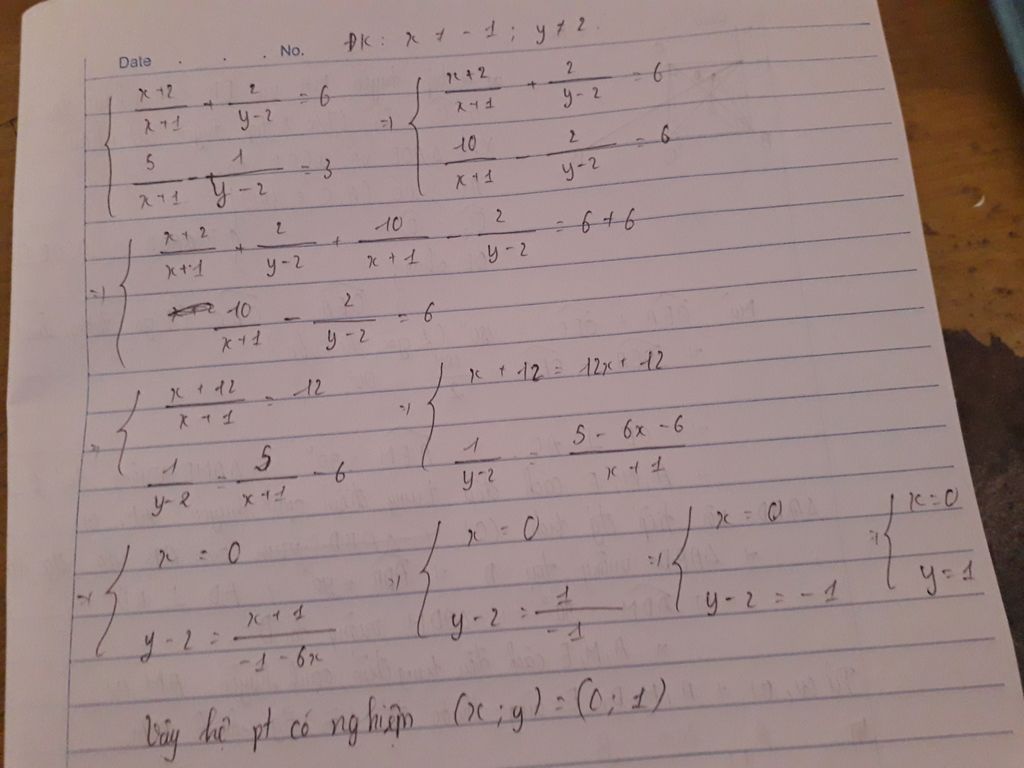 Date . . . No. ĐK: x ≠ -1 ; y ≠ 2.
{ (x+2)/(x+1) + 2/(y-2) = 6 ; 5/(x+1) - 1/(y-2) = 3 => { (x+2)/(x+1) + 2/(y-2) = 6 ; 10/(x+1) - 2/(y-2) = 6
=> { (x+2)/(x+1) + 2/(y-2) + 10/(x+1) - 2/(y-2) = 6 + 6
10/(x+1) - 2/(y-2) = 6
=> { (x+12)/(x+1) = 12 ; 1/(y-2) = 5/(x+1) - 6 => { x + 12 = 12x + 12 ; 1/(y-2) = (5 - 6x - 6)/(x+1)
=> { x = 0 ; y - 2 = (x+1)/(-1-6x) => { x = 0 ; y - 2 = 1/(-1) => { x = 0 ; y - 2 = -1 => { x = 0 ; y = 1
Vậy hệ pt có nghiệm (x ; y) = (0 ; 1)